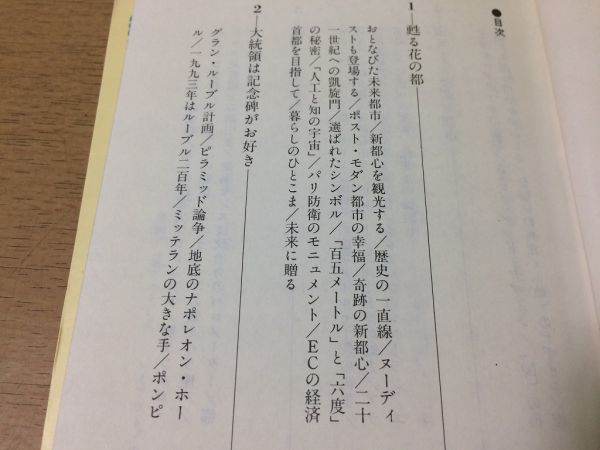 ●目次
1―甦る花の都
おとなびた未来都市／新都心を観光する／歴史の一直線／ヌーディ
ストも登場する／ポスト・モダン都市の幸福／奇跡の新都心／二十
一世紀への凱旋門／選ばれたシンボル／「百五メートル」と「六度」
の秘密／「人工と知の宇宙」／パリ防衛のモニュメント／ECの経済
首都を目指して／暮らしのひとこま／未来に贈る
2―大統領は記念碑がお好き
グラン・ルーブル計画／ピラミッド論争／地底のナポレオン・ホー
ル／一九九三年はルーブル二百年／ミッテランの大きな手／ポンピ